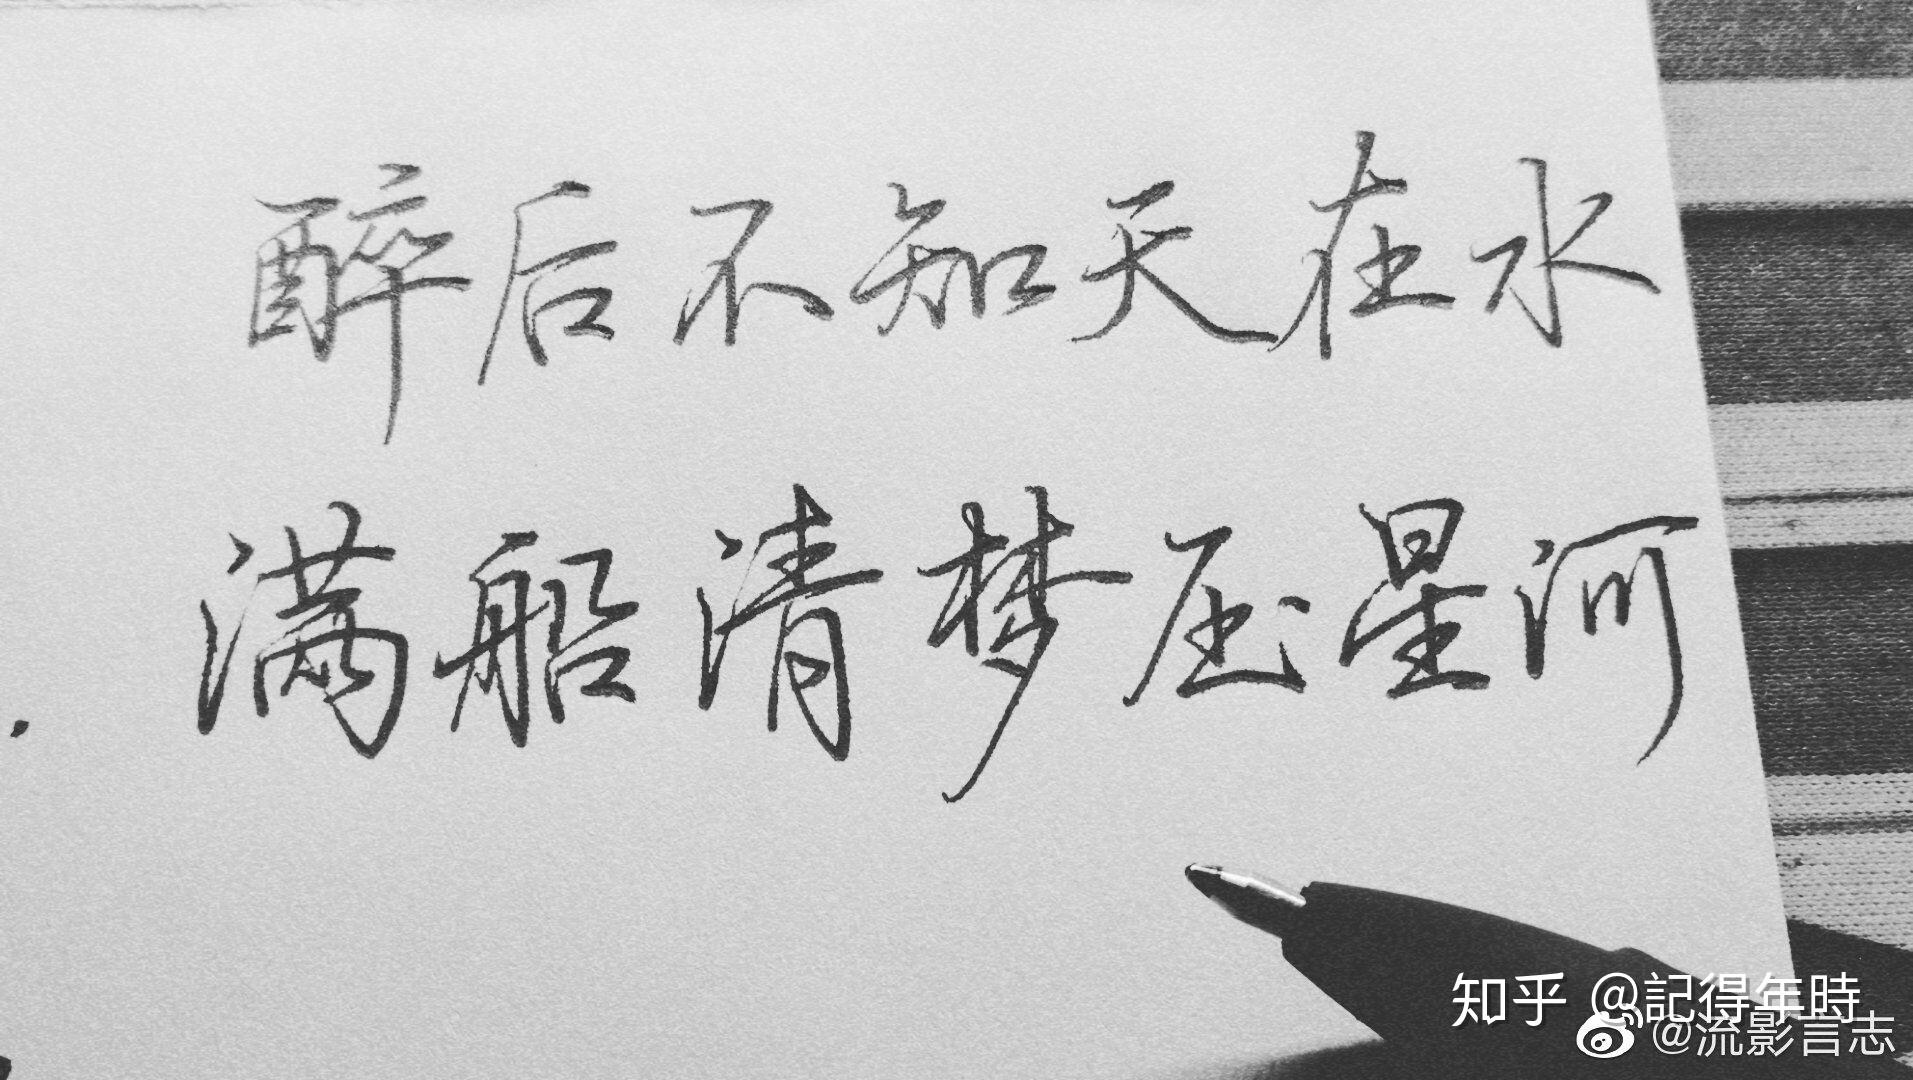 醉后不知天在水
满船清梦压星河
知乎 @記得年時
@流影言志